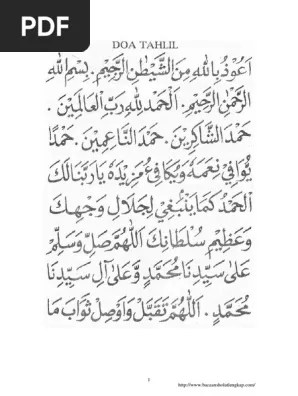 PDF
DOA TAHLIL
اَعُوْذُ بِاللهِ مِنَ الشَّيْطٰنِ الرَّجِيْمِ. بِسْمِ اللهِ
الرَّحْمٰنِ الرَّحِيْمِ. اَلْحَمْدُ لِلّٰهِ رَبِّ الْعَالَمِيْنَ.
حَمْدَ الشَّاكِرِيْنَ. حَمْدَ النَّاعِمِيْنَ. حَمْدًا
يُوَافِيْ نِعَمَهُ وَيُكَافِئُ مَزِيْدَهُ يَارَبَّنَالَكَ
الْحَمْدُ كَمَا يَنْبَغِيْ لِجَلَالِ وَجْهِكَ
وَعَظِيْمِ سُلْطَانِكَ اَللّٰهُمَّ صَلِّ وَسَلِّمْ
عَلٰى سَيِّدِنَا مُحَمَّدٍ وَّعَلٰى آلِ سَيِّدِنَا
مُحَمَّدٍ. اَللّٰهُمَّ تَقَبَّلْ وَاَوْصِلْ ثَوَابَ مَا
1
http://www.bacaandoalengkap.com/